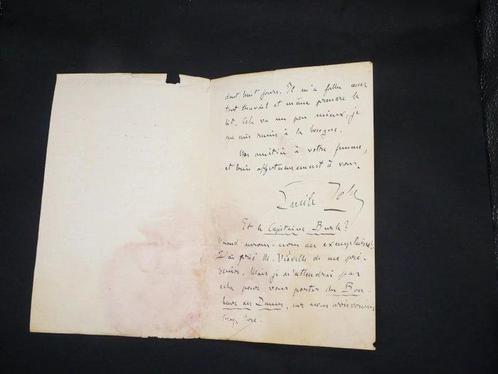 dant huit jours. Il m'a fallu cesser
tout travail et même prendre le
lit. Cela va un peu mieux, je
me suis remis à la besogne.
Nos amitiés à votre femme,
et bien affectueusement à vous.
Emile Zola
Et le Capitaine Burle?
Quand aurons-nous des exemplaires?
J'ai prié M. de me pré-
venir. Mais je n'attendrai pas
cela pour vous parler du Bon-
heur des Dames, car nous
trop tard.